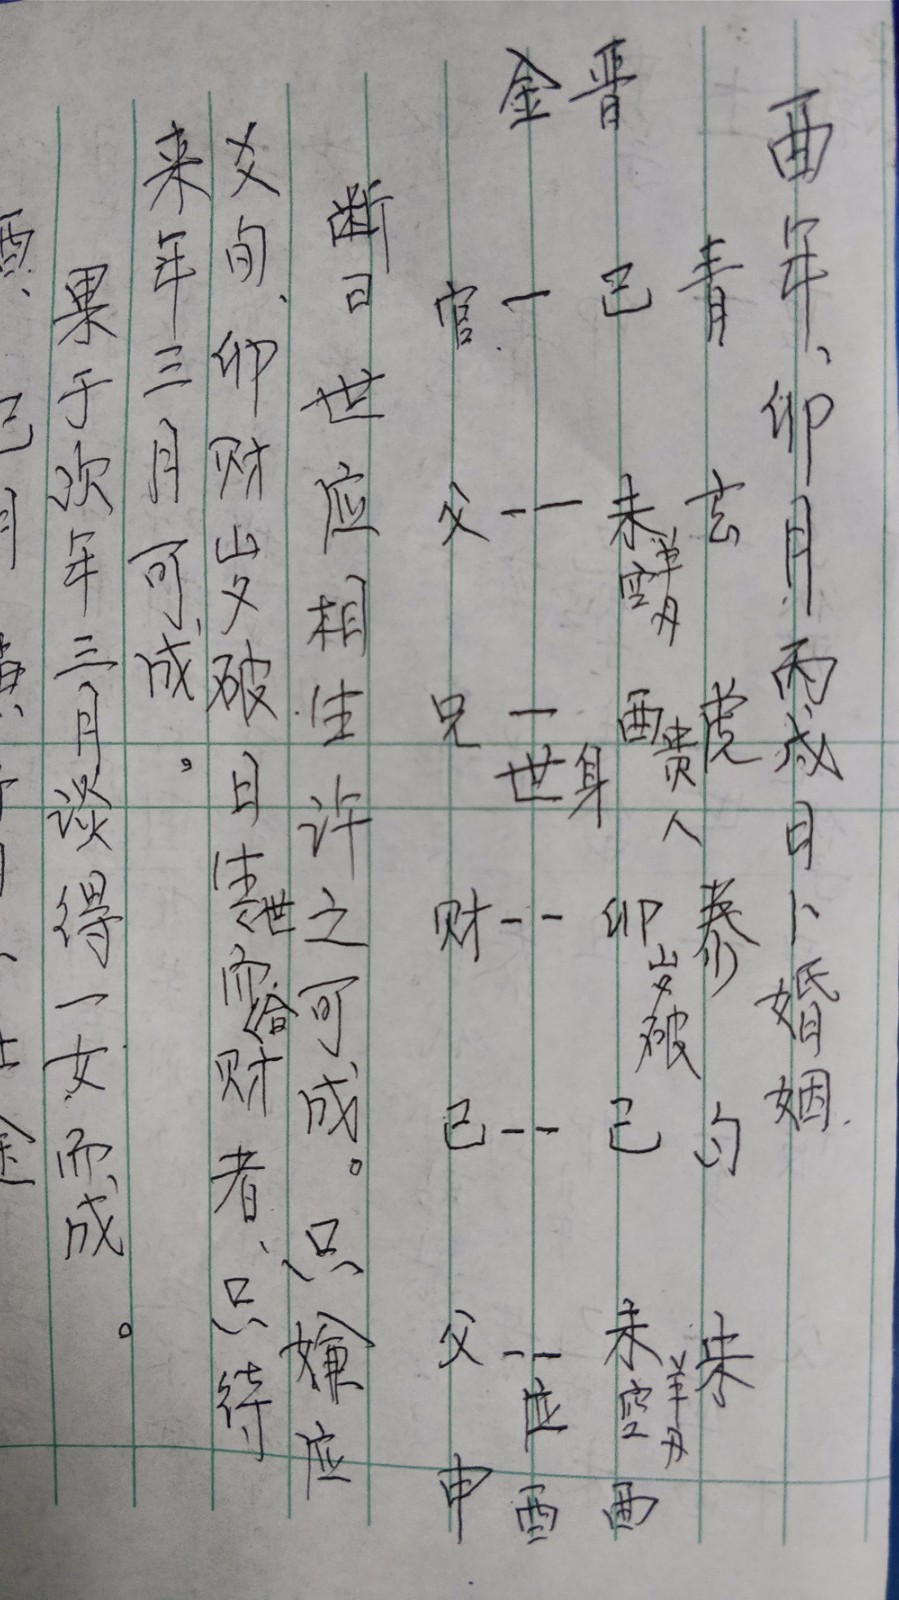 酉年、卯月丙戌日卜婚姻.
青 玄 虎 泰 勾 朱
晋 巳 未 空 羊刃 酉 贵人 卯 岁破 巳 未 空 羊刃 酉
金 一 -- 一 世身 -- -- -- 应 酉
官 父 兄 财 巳 父 申
断曰世应相生许之可成。只嫌应
爻旬、卯财岁破日生世而合财者、只待
来年三月可成。
果于次年三月谈得一女而成。